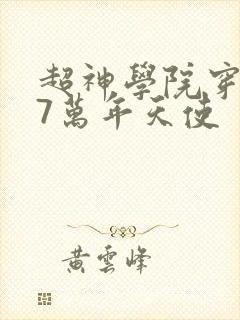 超神學院穿
7萬年天使
黃雲峰